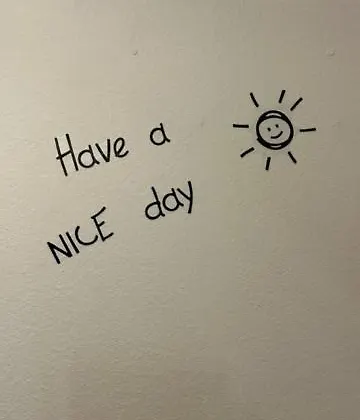 Have a
NICE day